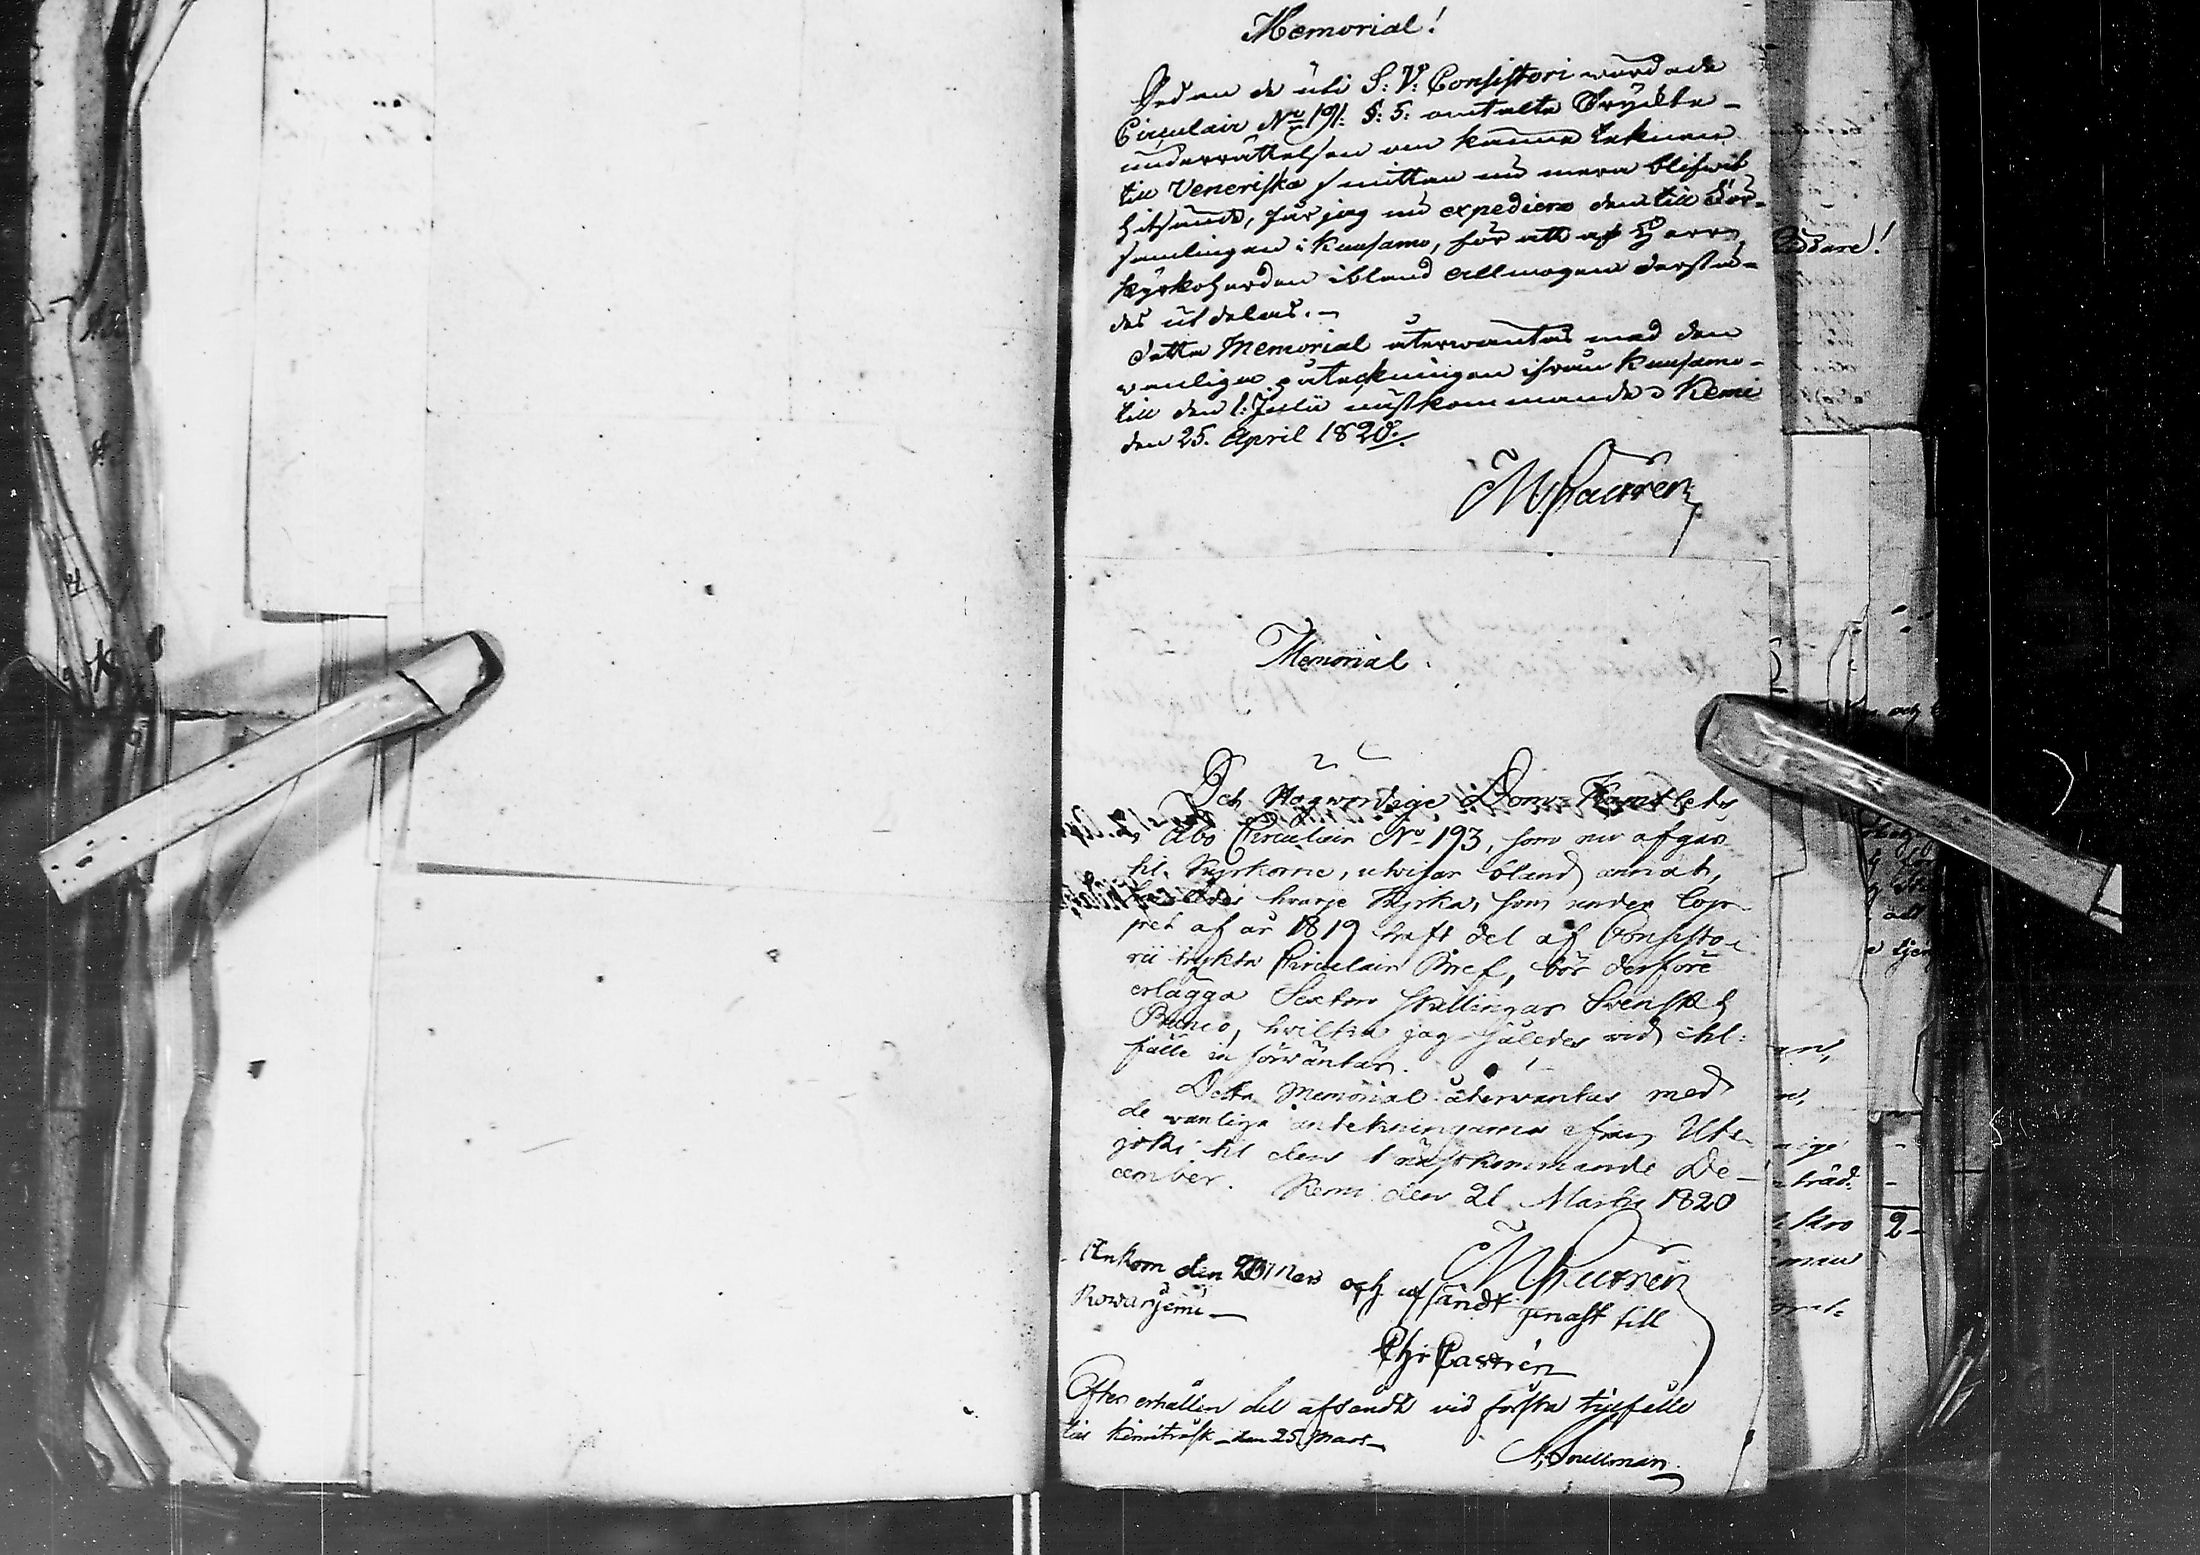 Memorial!
Sedan de uti S: V: Consistorii wördade
Circulair No 191. §: 5. omtalte Tryckte
underrättelsen om känne teknen
till Veneriska smittan nu mera blifwit
hitsände, får jag nu expediera den till För-
samlingen i Kuusamo, för att af Herr
Kyrkoherden ibland Allmogen derstä-
des utdelas. -
Detta Memorial återwäntas med den
wanliga påteckningen ifrån Kuusamo
till den 1: Julii nästkommande. Kemi
den 25. April 1820.
M Castrén
Memorial.
Högwördige Dom Kapitlets
i Åbo Circulair No 193, som nu afgår
til Kyrkorne, utvisar bland annat,
hvarje Kyrka, som under lop-
pet af år 1819 haft del af Consisto-
rii tryckta Circulair Bref, bör derföre
erlägga Sexton skillingar Svenskt
Banco, hvilka jag således vid til-
fälle in förväntar.
Detta Memorial återwäntas med
de wanliga antekningarna ifrån Uts-
joki til den 1 nästkommande De-
cember. Kemi den 21 Martii 1820
M Castrén
Ankom den Mars och afsändt genast till
Rowaniemi —
Chr Castrén
Efter erhållen del afsändt vid första tillfälle
till Kemiträsk - den 25 Mars -
Snellman